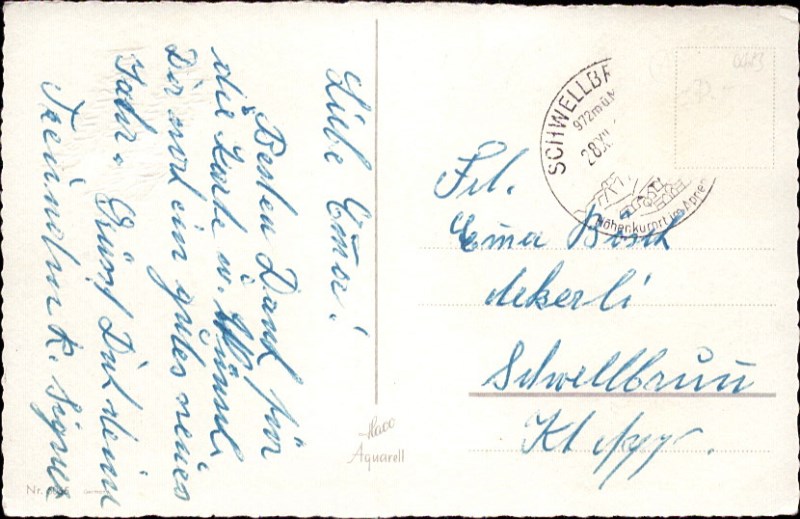 Liebe Ema!
Besten Dank für
die Karte u. Wünsche
Dir noch ein gutes neues
Jahr. Grüsst Dich deine
Freundin R. Signer
Frl.
Ema Bösch
Äckerli
Schwellbrunn
Kt. App.
SCHWELLBR
972m ü.M
28.XII
Höhenkurort im Appen
Haco
Aquarell
Nr.